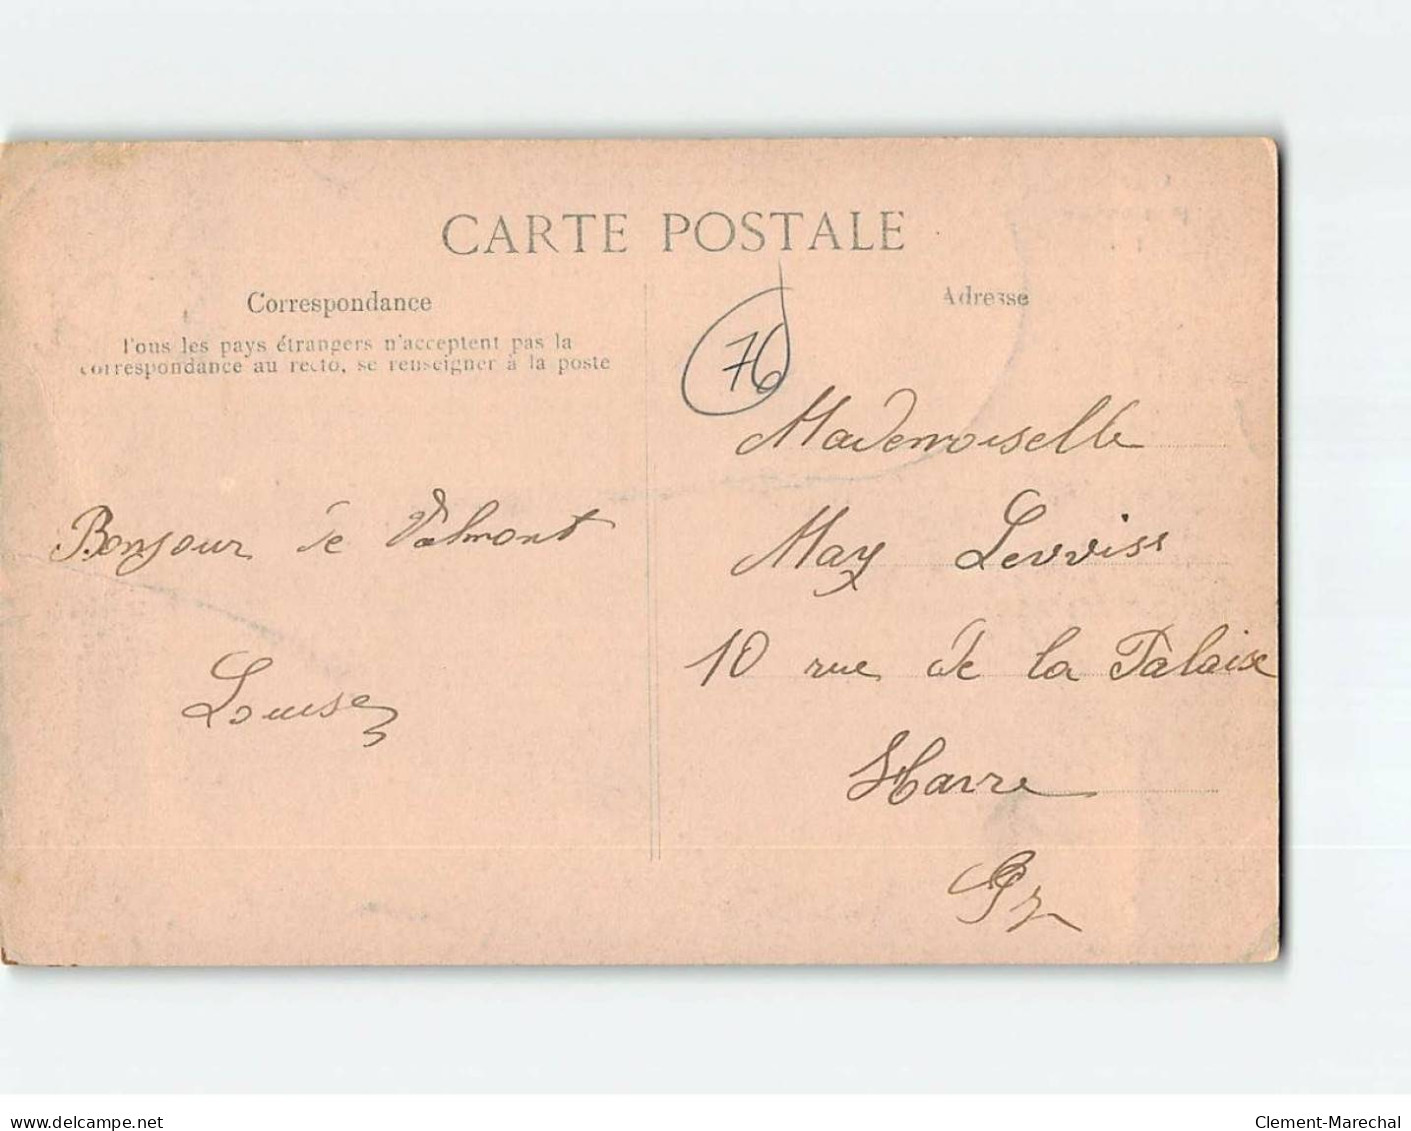 CARTE POSTALE
Correspondance
Tous les pays étrangers n'acceptent pas la
correspondance au recto, se renseigner à la poste
Bonjour de Valmont
Louise
Adresse
76
Mademoiselle
May Levviss
10 rue de la Falaise
Havre
www.delcampe.net
Clement-Marechal